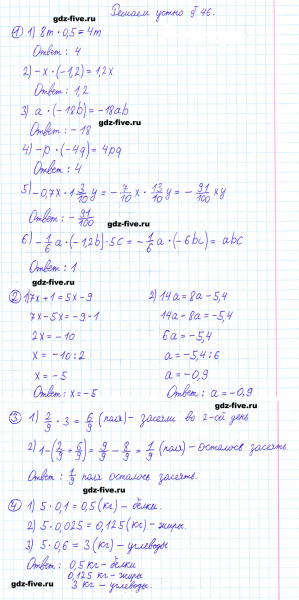 gdz-five.ru
Решаем устно § 46.
① 1) 8m · 0,5 = 4m
Ответ: 4
gdz-five.ru
2) -x · (-1,2) = 1,2x
Ответ: 1,2
3) a · (-18b) = -18ab
gdz-five.ru
Ответ: -18
4) -p · (-4q) = 4pq
gdz-five.ru
Ответ: 4
5) -0,7x · 1 3/10 y = -7/10 x · 13/10 y = -91/100 xy
Ответ: -91/100
gdz-five.ru
6) -1/6 a · (-1,2b) · 5c = -1/6 a · (-6bc) = abc
Ответ: 1
gdz-five.ru
② 1) 7x + 1 = 5x - 9
7x - 5x = -9 - 1
2x = -10
x = -10 : 2
x = -5
Ответ: x = -5
2) 14a = 8a - 5,4
14a - 8a = -5,4
6a = -5,4
a = -5,4 : 6
a = -0,9
Ответ: a = -0,9
gdz-five.ru
③ 1) 2/9 · 3 = 6/9 (поля) - засеяли во 2-ой день
2) 1 - (2/9 + 6/9) = 9/9 - 8/9 = 1/9 (поля) - осталось засеять.
gdz-five.ru
Ответ: 1/9 поля осталось засеять.
gdz-five.ru
④ 1) 5 · 0,1 = 0,5 (кг) - белки.
2) 5 · 0,025 = 0,125 (кг) - жиры.
gdz-five.ru
3) 5 · 0,6 = 3 (кг) - углеводы
Ответ: 0,5 кг - белки
0,125 кг - жиры
gdz-five.ru
3 кг - углеводы.